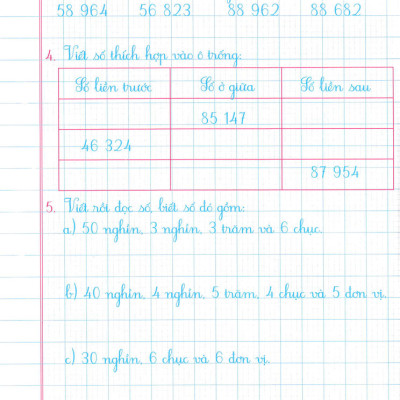 58 964 56 823 88 962 88 682
4. Viết số thích hợp vào ô trống:
Số liền trước Số ở giữa Số liền sau
85 147
46 324
87 954
5. Viết rồi đọc số, biết số đó gồm:
a) 50 nghìn, 3 nghìn, 3 trăm và 6 chục.
b) 40 nghìn, 4 nghìn, 5 trăm, 4 chục và 5 đơn vị.
c) 30 nghìn, 6 chục và 6 đơn vị.